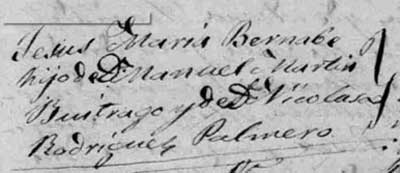 Jesus Maria Bernabé
hijo de Dn Manuel Martin
Buitrago y de Da Nicolasa
Rodriguez Palmero